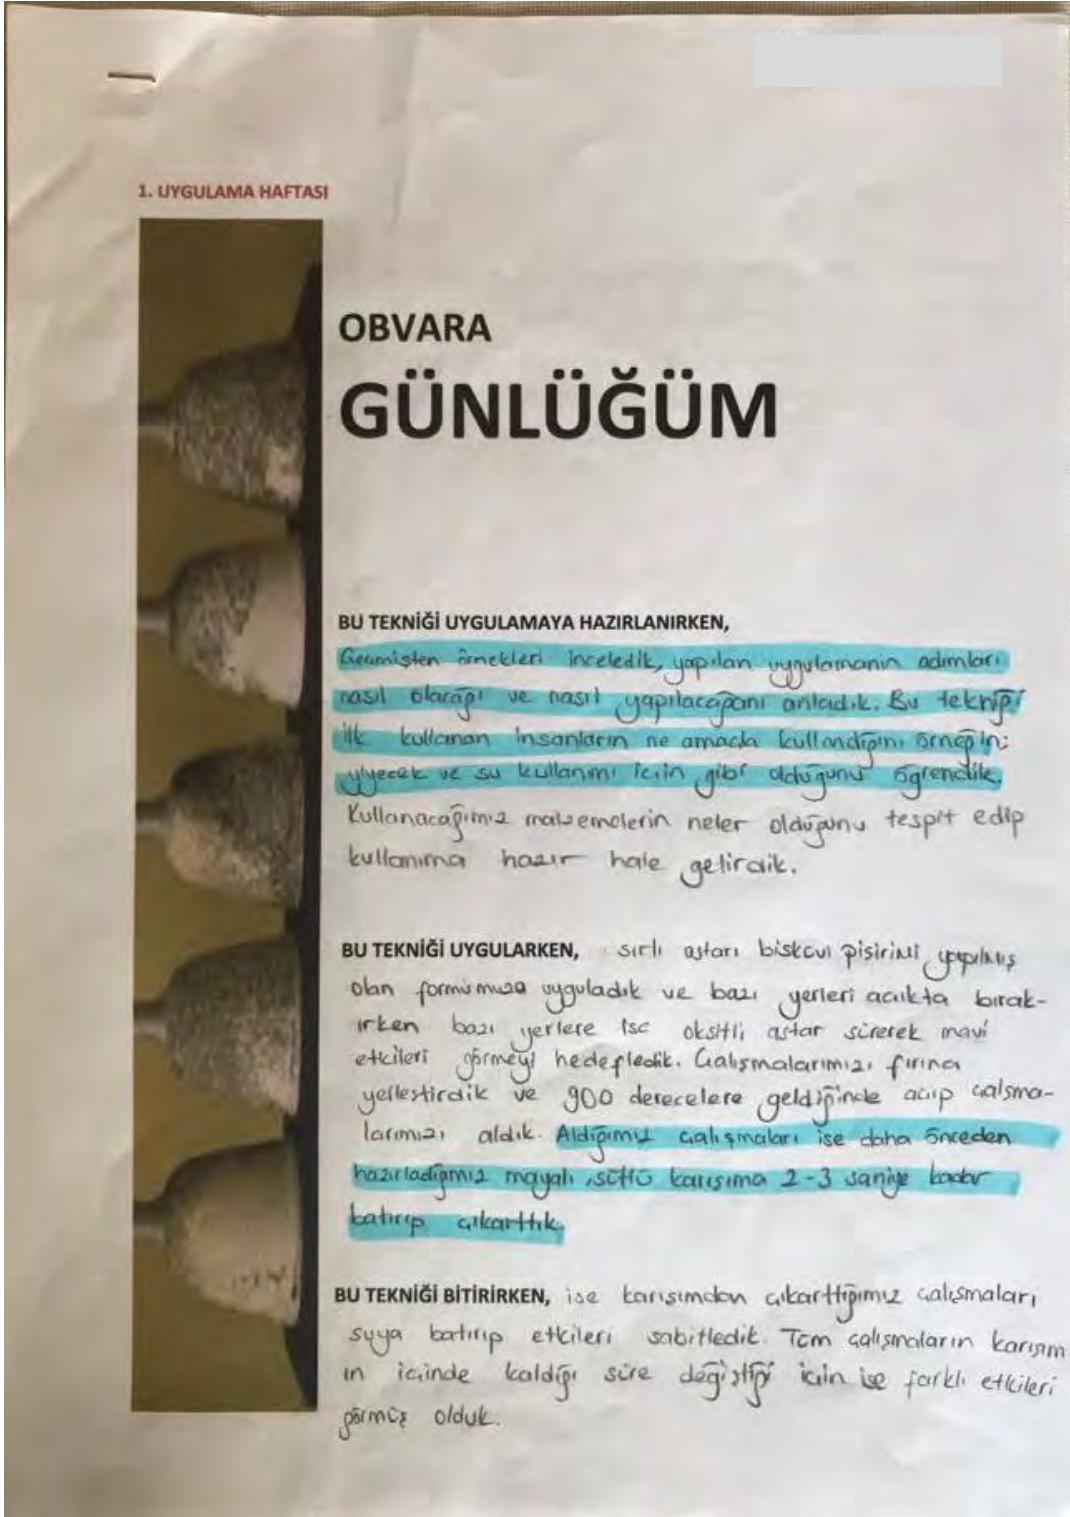 1. UYGULAMA HAFTASI
OBVARA
GÜNLÜĞÜM
BU TEKNİĞİ UYGULAMAYA HAZIRLANIRKEN,
Geçmişten örnekleri inceledik, yapılan uygulamanın adımları
nasıl olacağı ve nasıl yapılacağanı anladık. Bu tekniği
ilk kullanan insanların ne amaçla kullandığını örneğin;
yiyecek ve su kullanımı için gibi olduğunu öğrendik.
Kullanacağımız malzemelerin neler olduğunu tespit edip
kullanıma hazır hale getirdik.
BU TEKNİĞİ UYGULARKEN, sırlı astarı bisküvi pişirimi yapılmış
olan formumuza uyguladık ve bazı yerleri açıkta bırak-
ırken bazı yerlere ise oksitli astar sürerek mavi
etkileri görmeyi hedefledik. Çalışmalarımızı fırına
yerleştirdik ve 900 derecelere geldiğinde açıp çalışma-
larımızı aldık. Aldığımız çalışmaları ise daha önceden
hazırladığımız mayalı, sütlü karışıma 2-3 saniye kadar
batırıp çıkarttık.
BU TEKNİĞİ BİTİRİRKEN, ise karışımdan çıkarttığımız çalışmaları
suya batırıp etkileri sabitledik. Tüm çalışmaların karışım
ın içinde kaldığı süre değiştiği için ise farklı etkileri
görmüş olduk.